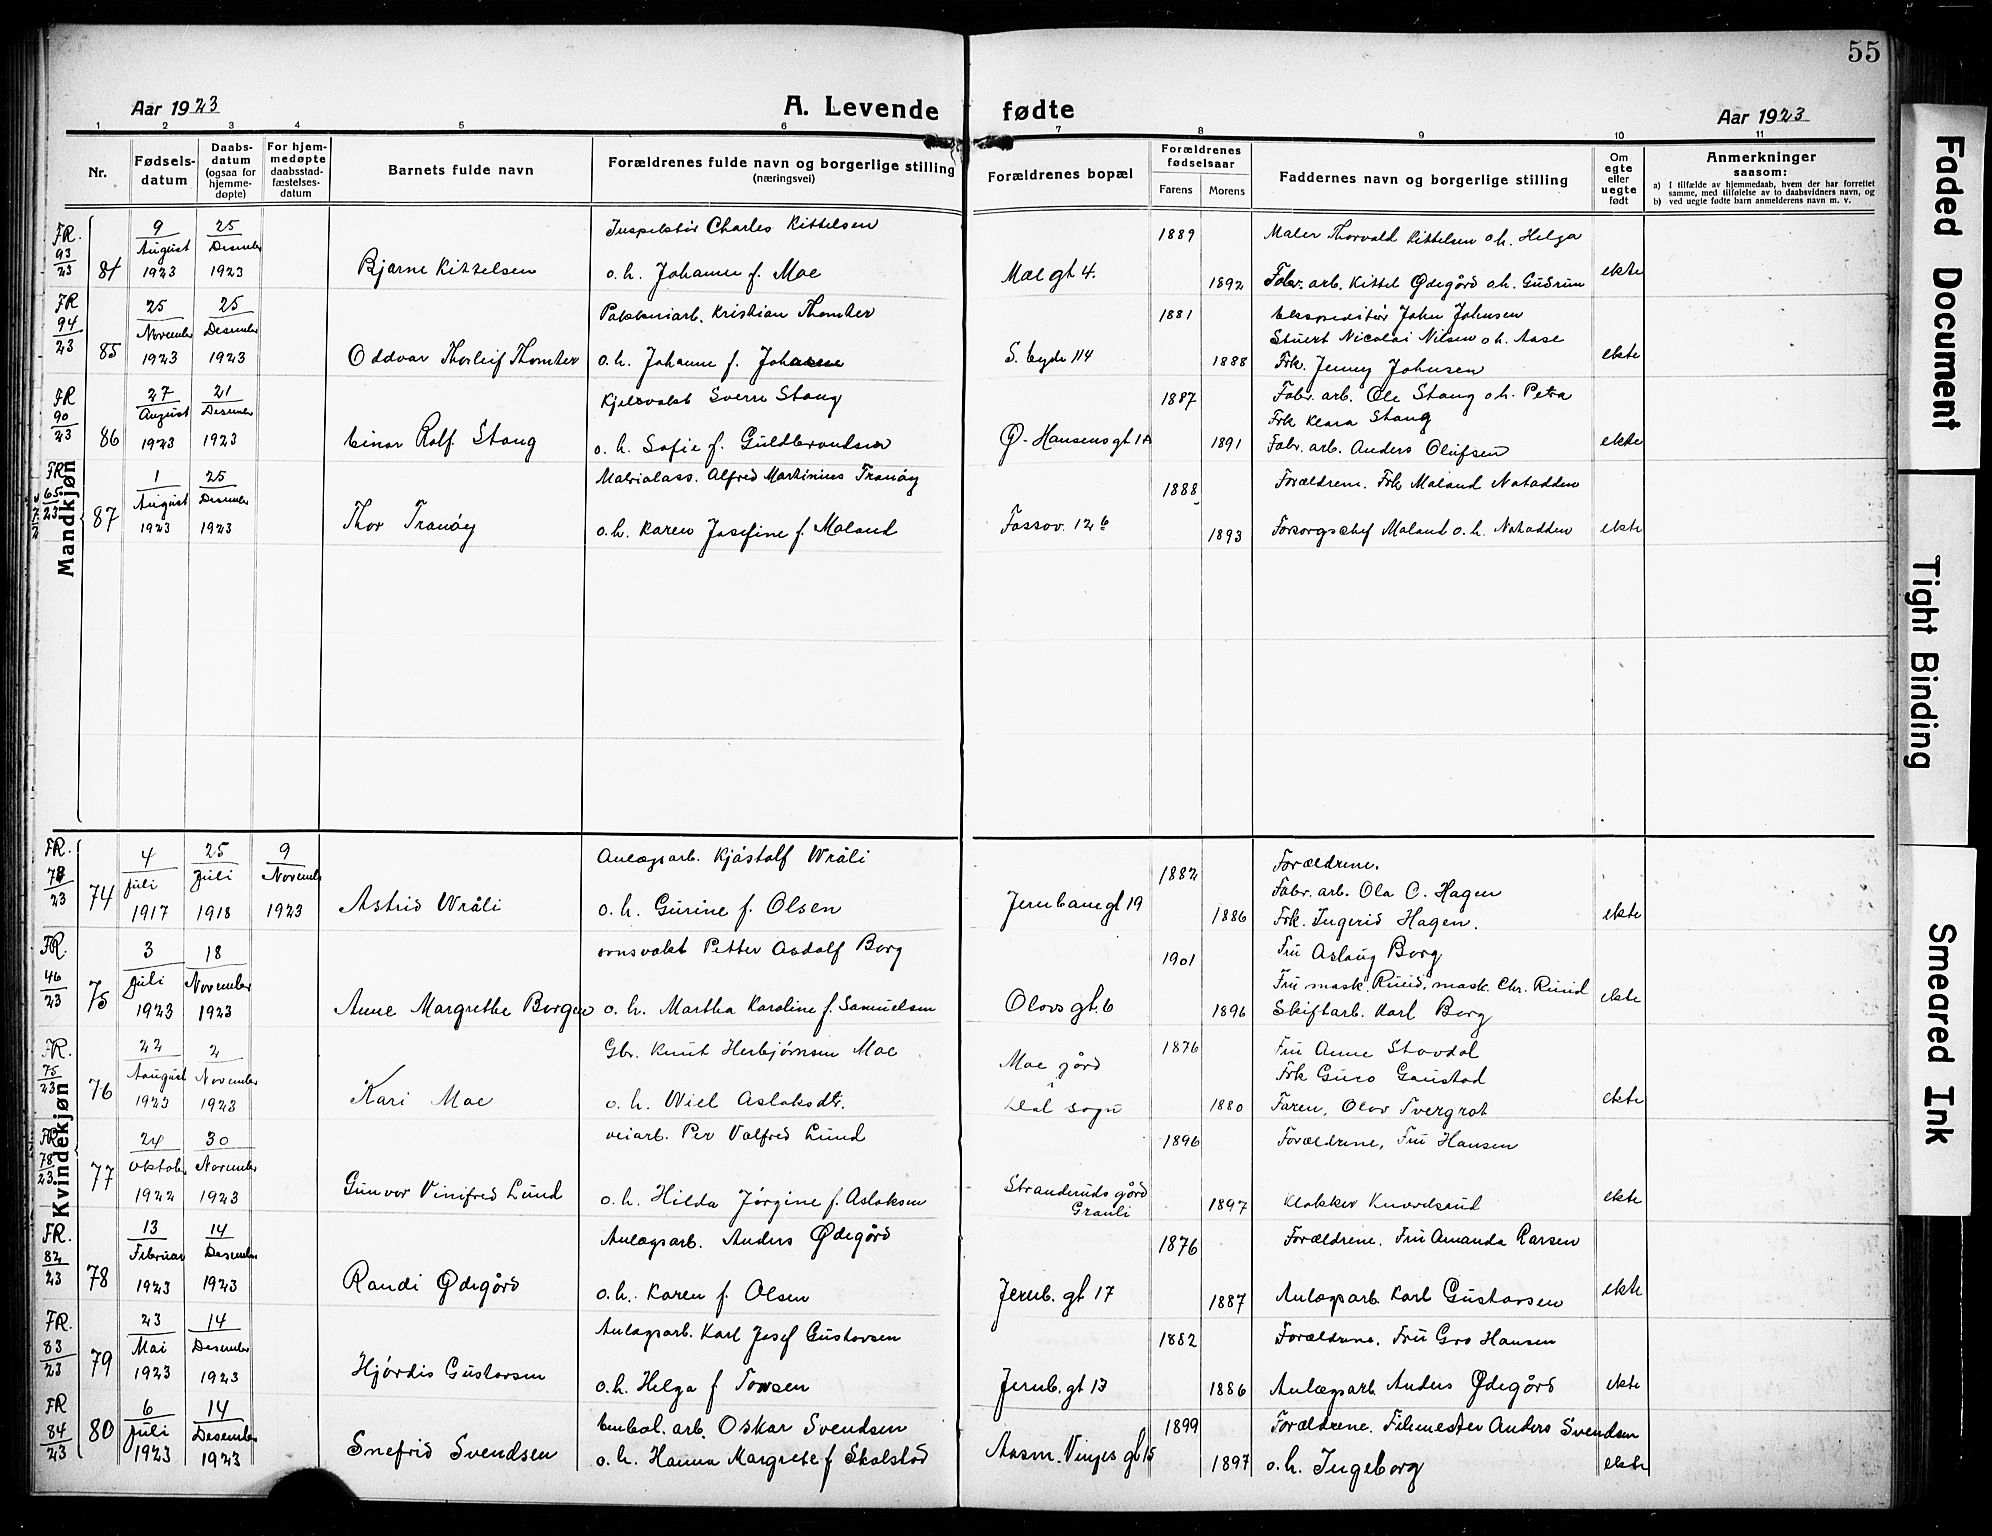 55
Aar 1923
A. Levende fødte
Aar 1923
1 2 3 4 5 6 7 8 9 10 11
Nr.
Fødsels-
datum
Daabs-
datum
(ogsaa for
hjemme-
døpte)
For hjem-
medøpte
daabsstad-
fæstelses-
datum
Barnets fulde navn
Forældrenes fulde navn og borgerlige stilling
(næringsvei)
Forældrenes bopæl
Forældrenes
fødselsaar
Farens Morens
Faddernes navn og borgerlige stilling
Om
egte
eller
uegte
født
Anmerkninger
saasom:
a) I tilfælde av hjemmedaab, hvem der har forrettet
samme, med tilføielse av to daabsvidners navn, og
b) ved uegte fødte barn anmelderens navn m. v.
Mandkjøn
FR. 93/23 84 9 August 1923 25 Desember 1923
Bjarne Kittelsen
Inspektør Charles Kittelsen
o. h. Johanne f. Moe
Moe gt 4.
1889 1892
Maler Thorvald Kittelsen o. h. Helga
Fabr. arb. Kittel Ødegård o. h. Gudrun
ekte
FR 94/23 85 25 November 1923 25 Desember 1923
Oddvar Thorleif Thomter
Pakkeriarb. Kristian Thomter
o. h. Johanne f. Johnsen
S. byde 114
1881 1888
Ekspeditør John Johnsen
Stuert Nicolai Nilsen o. h. Aase
Frk. Jenny Johnsen
ekte
FR 90/23 86 27 August 1923 21 Desember 1923
Einar Rolf Stang
Kjelsvakt Sverre Stang
o. h. Sofie f. Guldbrandsen
Ø. Hansens gt 1A
1887 1891
Fabr. arb. Ole Stang o. h. Petra
Frk Klara Stang
Fabr. arb. Anders Olufsen
ekte
FR 65/23 87 1 August 1923 25 Desember 1923
Thor Tranøy
Matrialass. Alfred Martinius Tranøy
o. h. Karen Josefine f. Moland
Fossov. 12 b
1888 1893
Forældrene. Frk Moland Notodden
Forsorgschef Moland o. h. Notodden
ekte
Kvindekjøn
FR. 78/23 74 4 Juli 1917 25 Juli 1918 9 November 1923
Astrid Wråli
Anlægsarb. Kjåstolf Wråli
o. h. Gurine f. Olsen
Jernbanegt 19
1882 1886
Forældrene.
Fabr. arb. Ola C. Hagen
Frk. Ingerid Hagen.
ekte
FR. 46/23 75 3 Juli 1923 18 November 1923
Anne Margrethe Borgen
ovnsvakt Petter Asdolf Borg
o. h. Martha Karoline f. Samuelsen
Olovs gt. 6
1901 1896
Fru Aslaug Borg
Fru mask. Ruud, mask. Chr. Ruud
Skiftarb. Karl Borg
ekte
FR. 75/23 76 22 August 1923 2 November 1923
Kari Moe
Gbr. Knut Herbjørnsen Moe
o. h. Wiel Aslaksdtr.
Moe gård
Dal sogn
1876 1880
Fru Anne Stovdal
Frk Guro Gaustad
Faren, Olov Tvergrot
ekte
FR. 78/23 77 24 Oktober 1922 30 November 1923
Gunvor Vinifred Lund
veiarb. Per Valfred Lund
o. h. Hilda Jørgine f. Aslaksen
Stranderuds gård
Grauli
1896 1897
Forældrene, Fru Hansen
Klokker Knardsund
ekte
FR. 82/23 78 13 Februar 1923 14 Desember 1923
Randi Ødegård
Anlægsarb. Anders Ødegård
o. h. Karen f. Olsen
Jernb. gt 17
1876 1887
Forældrene. Fru Amanda Larsen
Anlægsarb. Karl Gustavsen
ekte
FR. 83/23 79 23 Mai 1923 14 Desember 1923
Hjørdis Gustavsen
Anlægsarb. Karl Josef Gustavsen
o. h. Helga f Torsen
Jernb. gt 13
1882 1886
Forældrene. Fru Gro Hansen
Anlægsarb Anders Ødegård
ekte
FR 84/23 80 6 Juli 1923 14 Desember 1923
Snefrid Svendsen
Embal. arb. Oskar Svendsen
o. h. Hanna Margrete f Skolstad
Aasm. Vinjes gt 15
1899 1897
Forældrene. Filemester Anders Svendsen
o. h. Ingeborg
ekte
Faded Document
Tight Binding
Smeared Ink